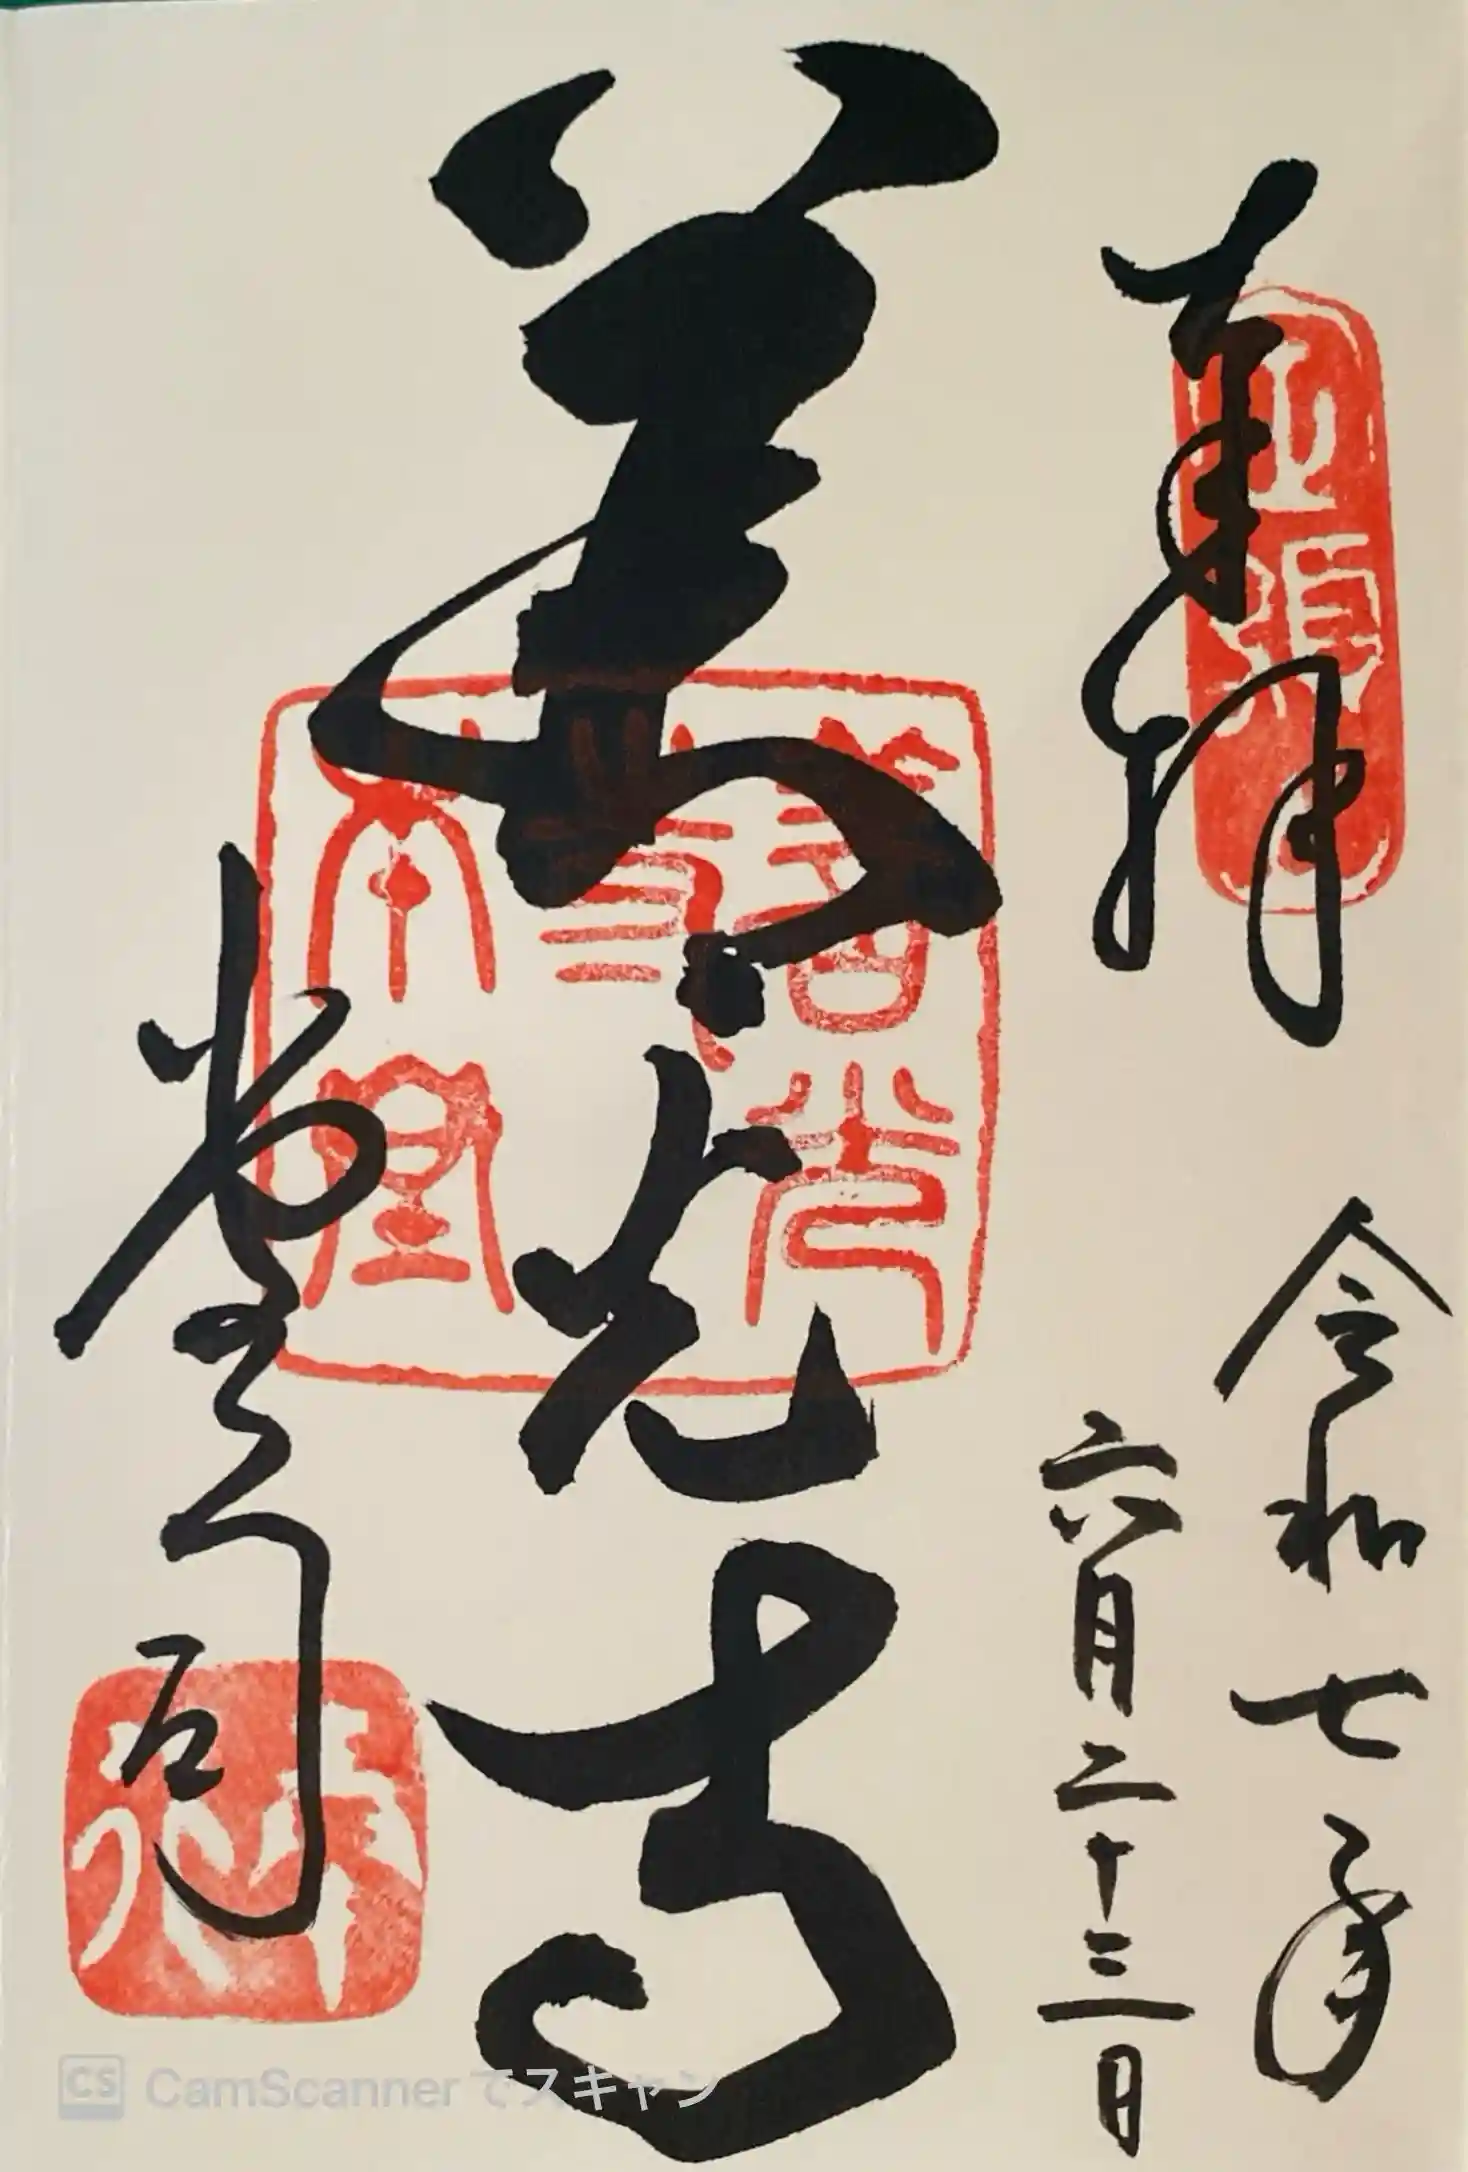 奉拝
令和七年
六月二十三日
善光寺
堂司
善光
寺
本堂
CS CamScannerでスキャン